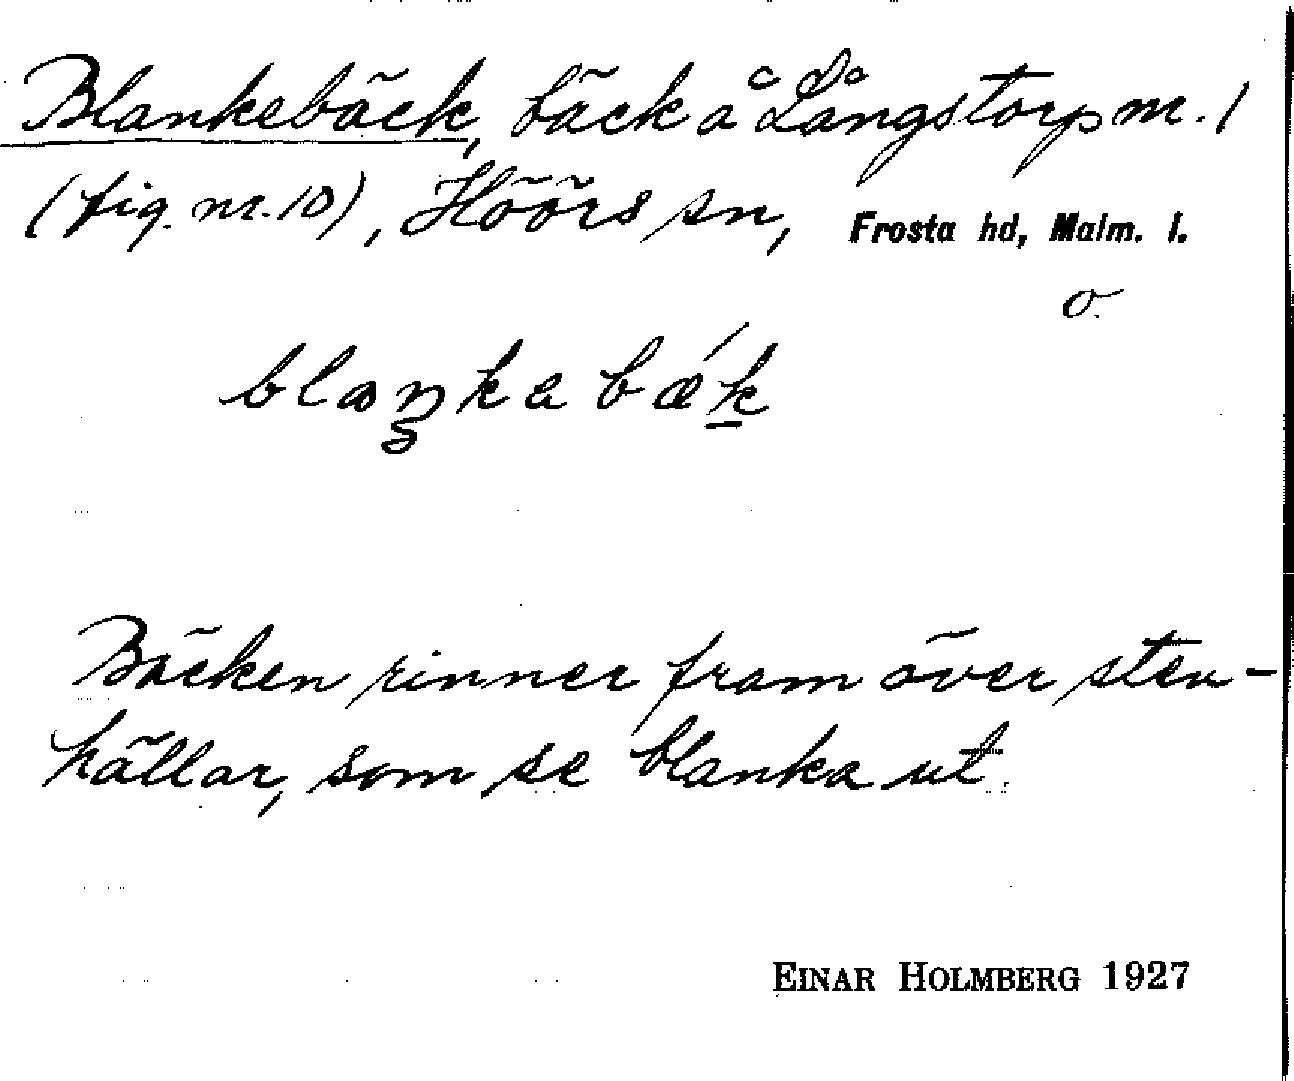 Blankebäck, bäck å Långstorp nr. 1
(fig. nr. 10), Höörs sn, Frosta hd, Malm. l.
Bäcken rinner fram över sten-
hällar, som se blanka ut.
EINAR HOLMBERG 1927